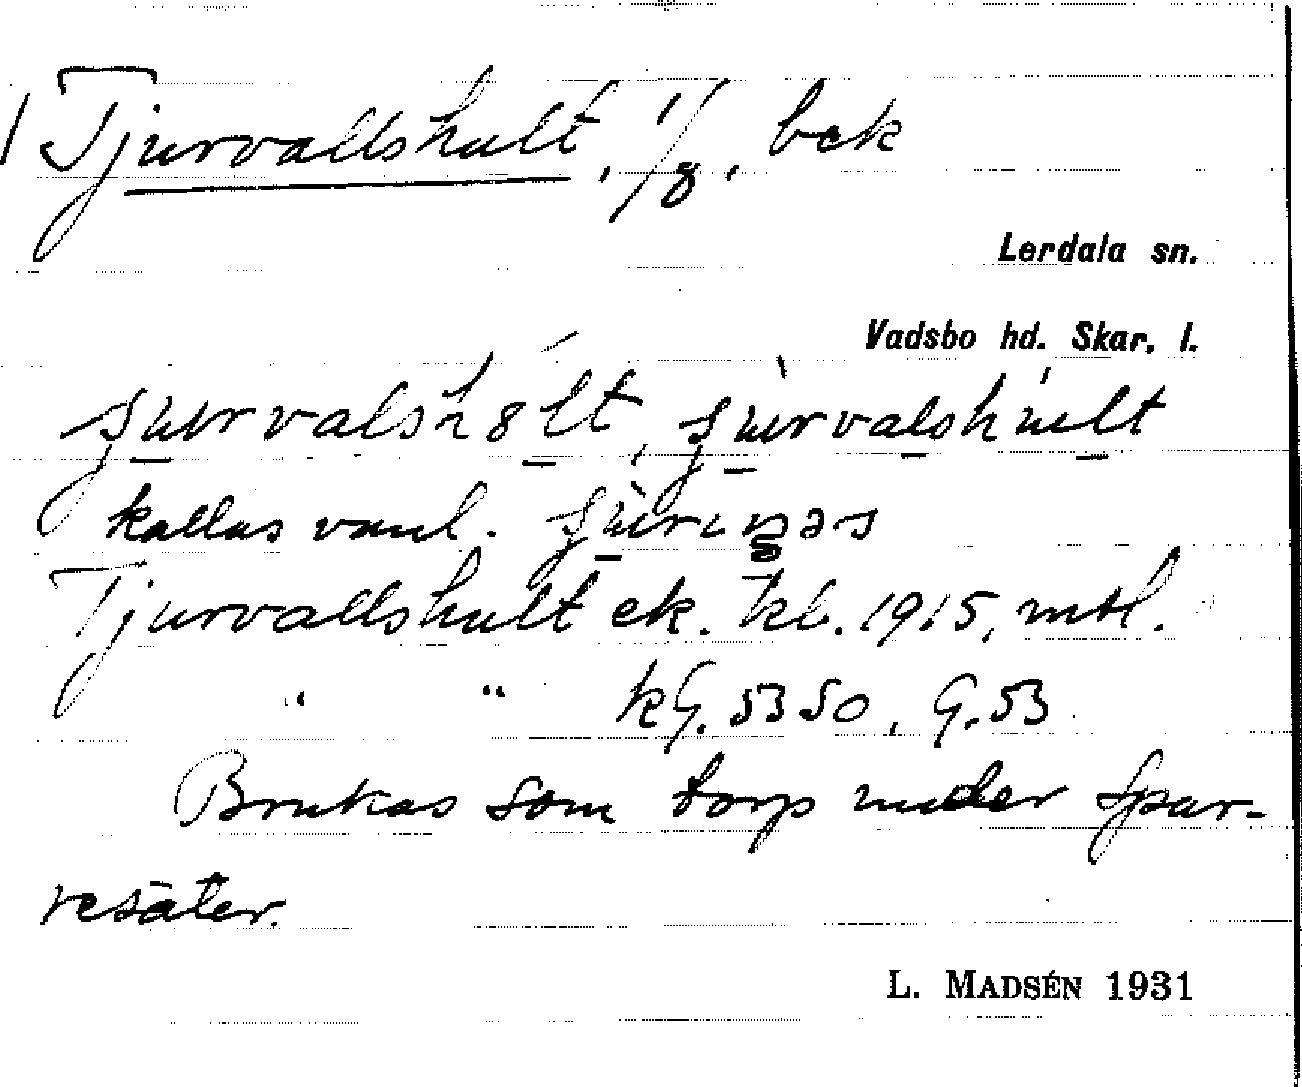 Tjurvallshult, 1/8, bek
Lerdala sn.
Vadsbo hd. Skar. l.
kallas vanl.
Tjurvallshult ek. kl. 1915, mtl.
" " kG. 5350, G. 53
Brukas som torp under Spar-
resäter.
L. MADSÉN 1931